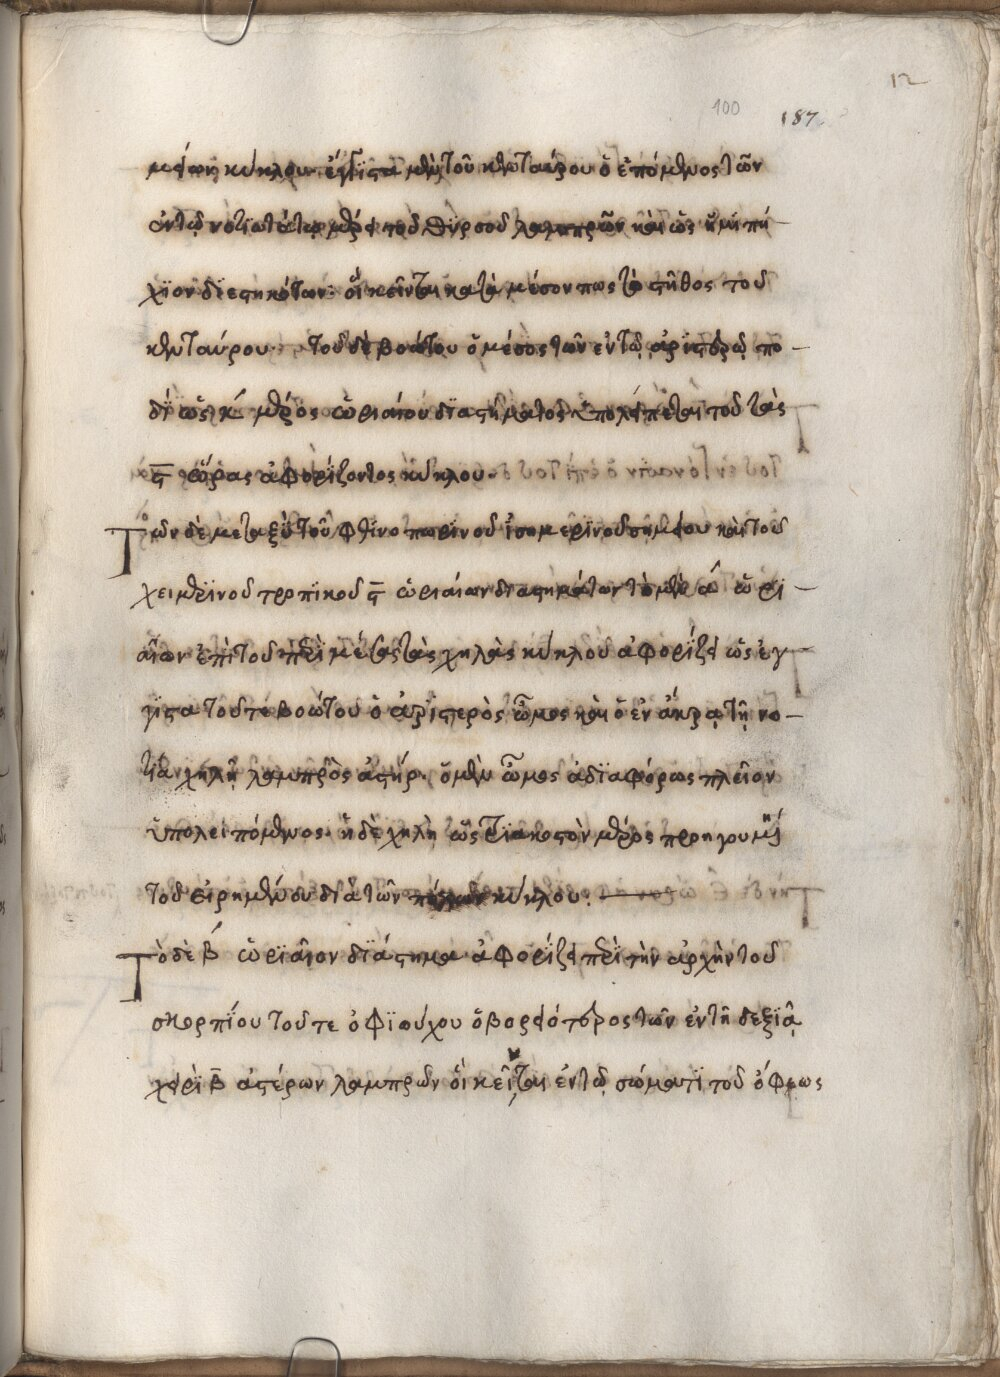 12
100
187
μείου κύκλου· ἔγγιστα μὲν τοῦ κενταύρου ὁ ἑπόμενος τῶν
ἐν τῷ νοτιωτάτῳ μέρει τοῦ θύρσου λαμπρῶν καὶ ὡς ἥμι πή-
χϊον διεστηκότων· οἳ κεῖνται κατὰ μέσον πως τὸ στῆθος τοῦ
κενταύρου· τοῦ δὲ βοώτου ὁ μέσος τῶν ἐν τῷ ἀριστερῷ πο-
δί ὡς κ´ μέρος ὡριαίου διαστήματος ὑπολείπεται τοῦ τὰς
ϛ ὥρας ἀφορίζοντος κύκλου·
Τῶν δὲ μεταξὺ τοῦ φθινοπωρινοῦ ἰσημερινοῦ σημείου καὶ τοῦ
χειμερϊνοῦ τροπϊκοῦ ϛ ὡριαίων διαστημάτων τὸ μὲν α´ ὡρι-
αῖον ἐπὶ τοῦ περὶ μέσας τὰς χηλὰς κύκλου ἀφορίζει ὡς ἔγ
γιστα τοῦ τε βοώτου ὁ ἀριστερὸς ὦμος καὶ ὁ ἐν ἄκρᾳ τῇ νο-
τίᾳ χηλῇ λαμπρὸς ἀστήρ· ὁ μὲν ὦμος ἀδιαφόρως πλεῖον
ὑπολειπόμενος· ἡ δὲ χηλὴ ὡς τριακοστὸν μέρος προηγουμένη
τοῦ εἰρημένου διὰ τῶν πόλων κύκλου·
Τὸ δὲ β´ ὡριαῖον διάστημα ἀφορίζει περὶ τὴν ἀρχὴν τοῦ
σκορπίου τοῦ τε ὀφϊούχου ὁ βορειότερος τῶν ἐν τῇ δεξιᾷ
χειρὶ β̄ ἀστέρων λαμπρῶν οἳ κεῖνται ἐν τῷ σώματϊ τοῦ ὄφεως